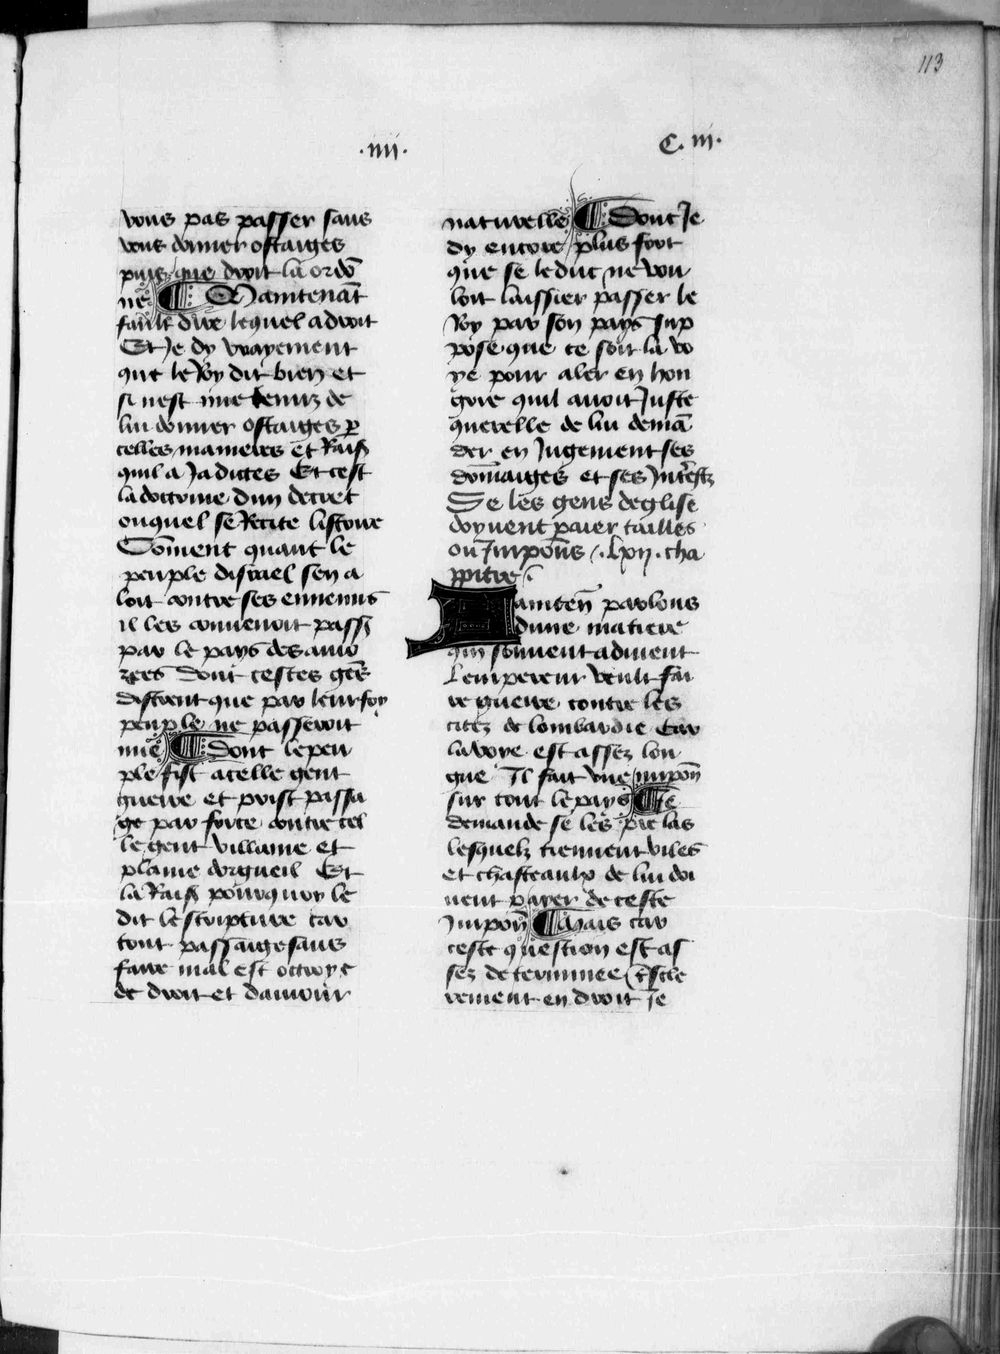 113
.iiii.
C. iii.
vous pas passer sans
vous donner ostaiges
puis que droit la ordõ
ne ¶ Maintenãt
fault dire lequel a droit
Et Je dy vrayement
que le Roy dit bien et
si nest mie tenuz de
lui donner ostaiges ꝑ
celles manieres et Raiſ
quil a Ja dictes Et cest
la doctrine dun decret
ouquel se Recite listoire
Cõment quant le
peuple disrael sen a
loit contre ses ennemis
il les convenoit passˀ
par le pays des amo
rees dont cestes gẽs
distrent que par leur foy
peuple ne passeroit
mie ¶ Dont le peu
ple fist a celle gent
guerre et prist passa
ge par force contre cel
le gent villaine et
plaine dorgueil Et
la Raiſ pourquoy le
dit lescripture car
tout passaige sans
faire mal est octroye
de droit et damour
naturelle ¶ Dont Je
dy encore plus fort
que se le duc ne vou
loit laissier passer le
Roy par son pays sup
pose que ce soit la vo
ye pour aler en hon
gore quil auroit Juste
querelle de lui demã
der en Jugement ses
dõmaiges et ses Jnterestz
Se les gens deglise
doyuent paier tailles
ou Jmpõns .lxii. cha
ppitre
Mainteñ parlons
dune matiere
qui souuent aduient
Lempereur veult fai
re guerre contre les
citez de lombardie Car
la voye est assez lon
gue Il fait vne jmpõn
sur tout le pays ¶ Je
demande se les prelas
lesquelz tiennent viles
et chasteaulx de lui doi
uent payer de ceste
Jmpõn ¶ Mais car
ceste question est as
sez determinee
rement en droit Je